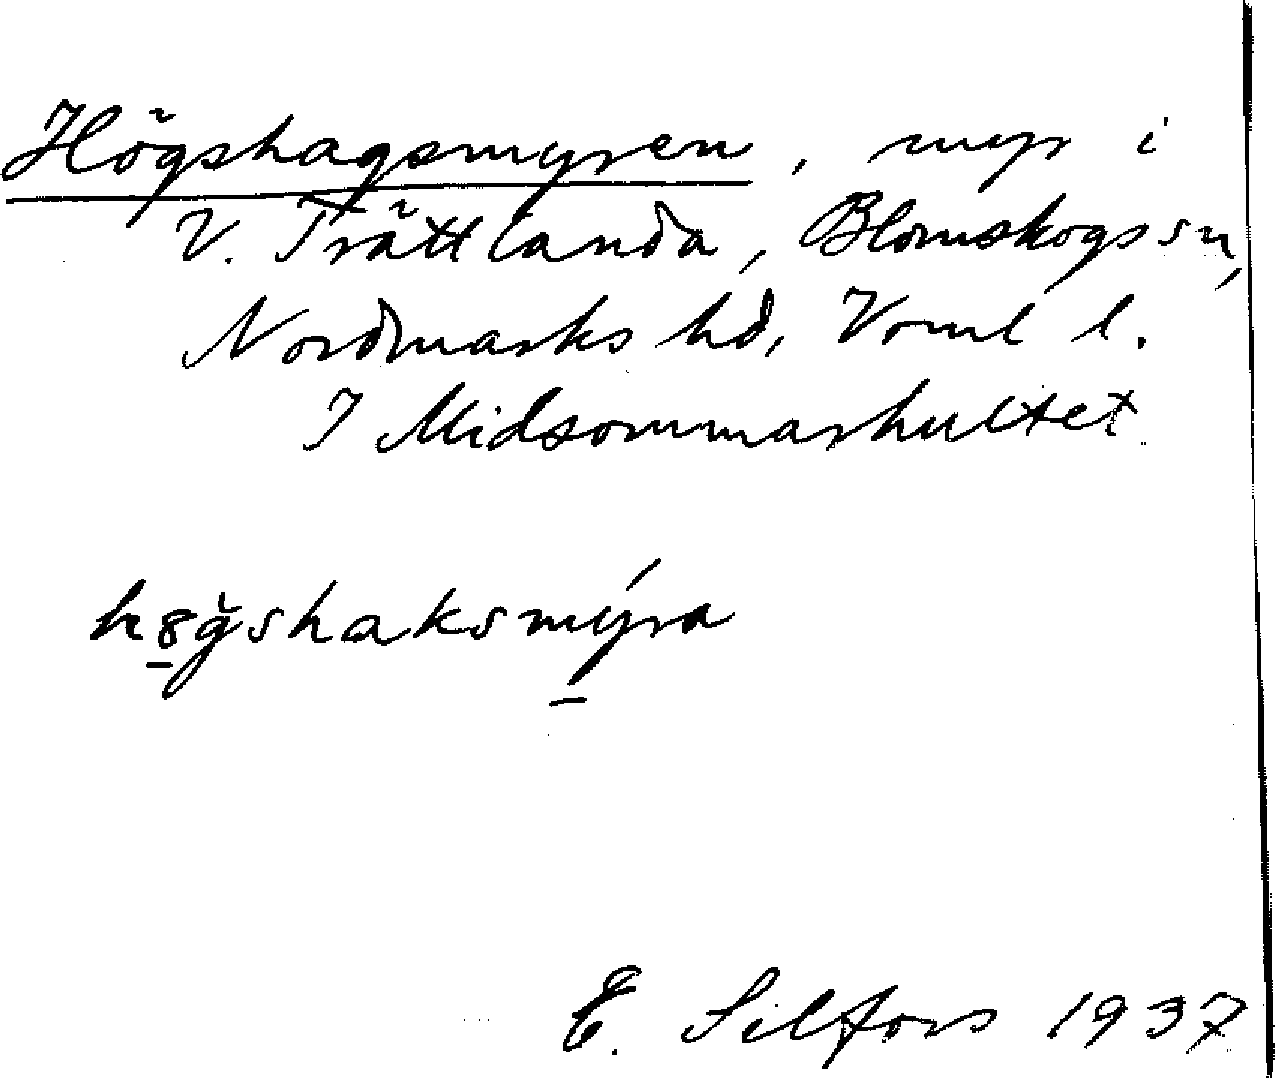 Högshagsmyren, myr i
V. Trättlanda, Blomskogs sn,
Nordmarks hd, Verml l.
I Midsommarhultet.
hȣg̀shaksmýra
E. Silfors 1937